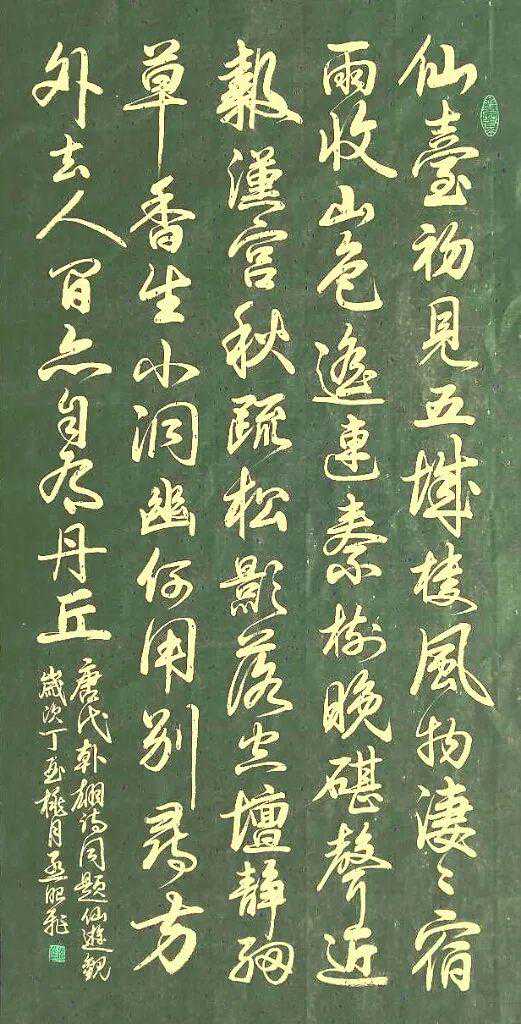 仙臺初見五城樓風物淒〻宿
雨收山色遙連秦樹晚碪聲近
報漢宮秋疏松影落空壇靜細
草香生小洞幽何用別尋方
外去人間亦自有丹丘
唐代韓翃詩同題仙遊觀
歲次丁 桃月